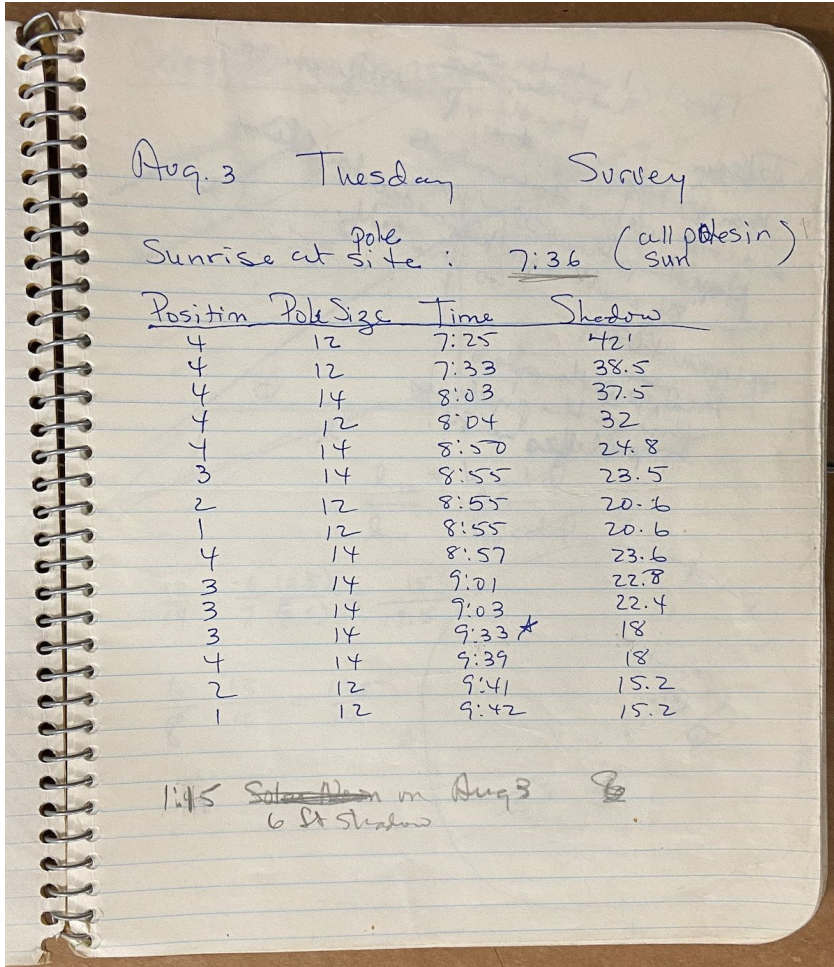 Aug. 3 Tuesday Survey
Sunrise at pole site : 7:36 (all poles in sun)
Position Pole Size Time Shadow
4 12 7:25 42'
4 12 7:33 38.5
4 14 8:03 37.5
4 12 8:04 32
4 14 8:50 24.8
3 14 8:55 23.5
2 12 8:55 20.6
1 12 8:55 20.6
4 14 8:57 23.6
3 14 9:01 22.8
3 14 9:03 22.4
3 14 9:33 ☆ 18
4 14 9:39 18
2 12 9:41 15.2
1 12 9:42 15.2
1:45 Solar Noon on Aug 3
6 ft Shadow